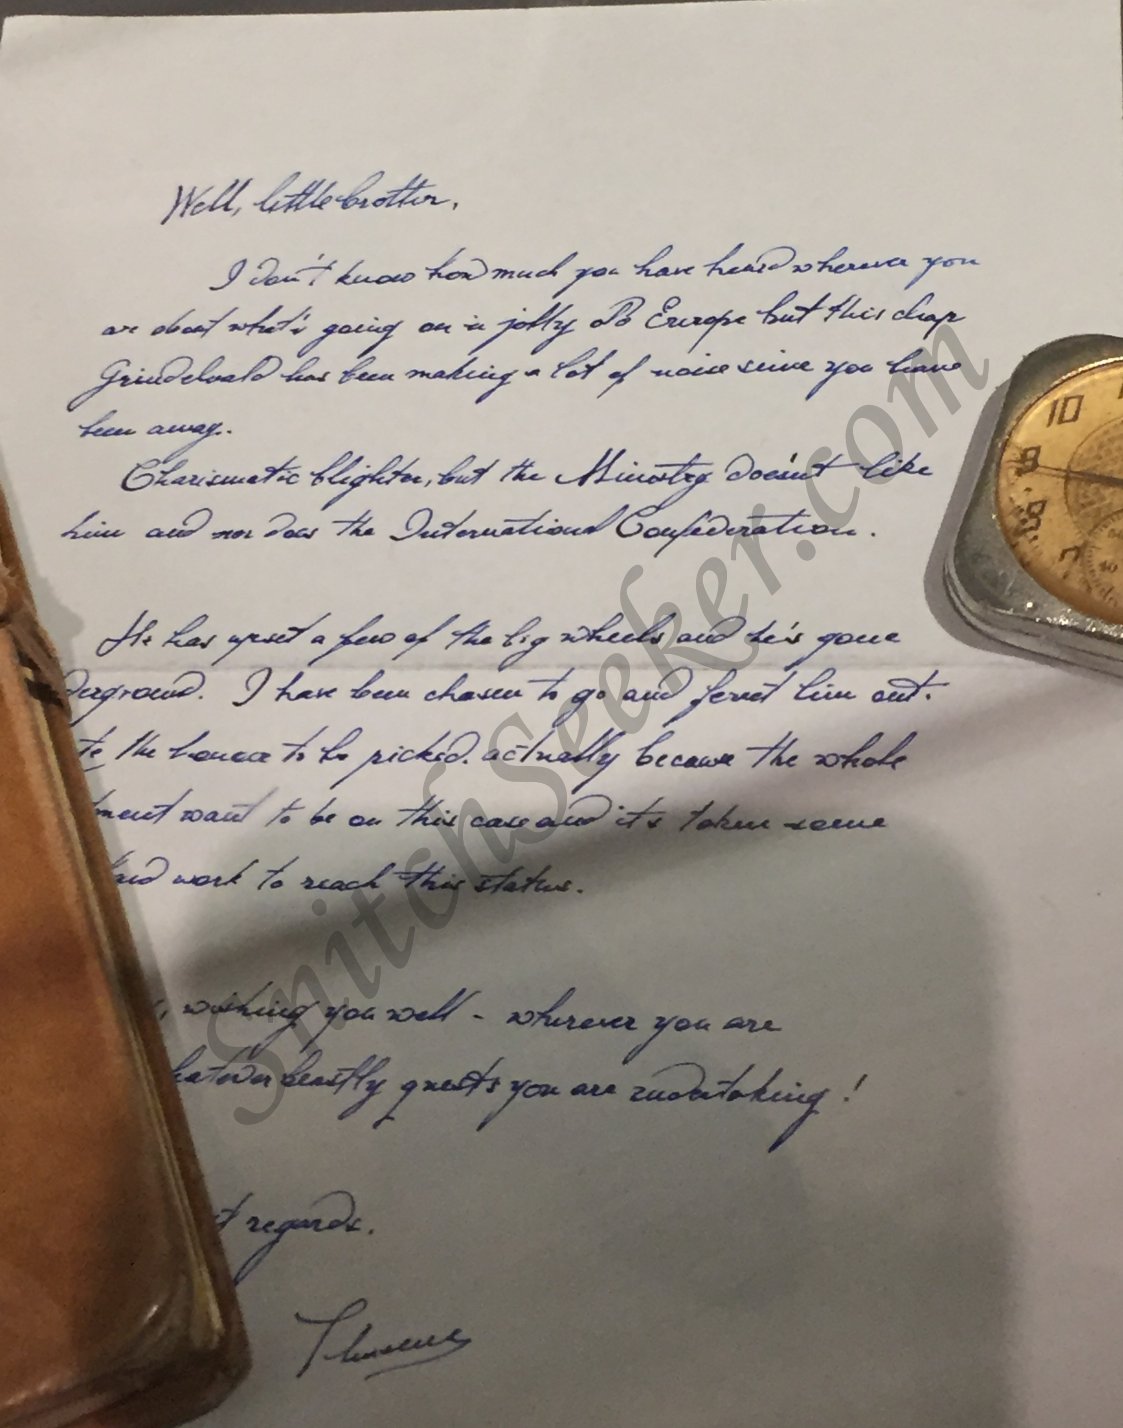 Well, little brother,
I don't know how much you have heard wherever you
are about what's going on in jolly old Europe but this chap
Grindelwald has been making a lot of noise since you have
been away.
Charismatic blighter, but the Ministry doesn't like
him and nor does the International Confederation.
He has upset a few of the big wheels and he's gone
derground. I have been chosen to go and ferret him out.
te the honour to be picked, actually because the whole
ment want to be on this case and it's taken some
hard work to reach this status.
, wishing you well - wherever you are
hatever beastly quests you are undertaking!
t regards.
Theseus
10
9
8
7
40
SnitchSeeker.com